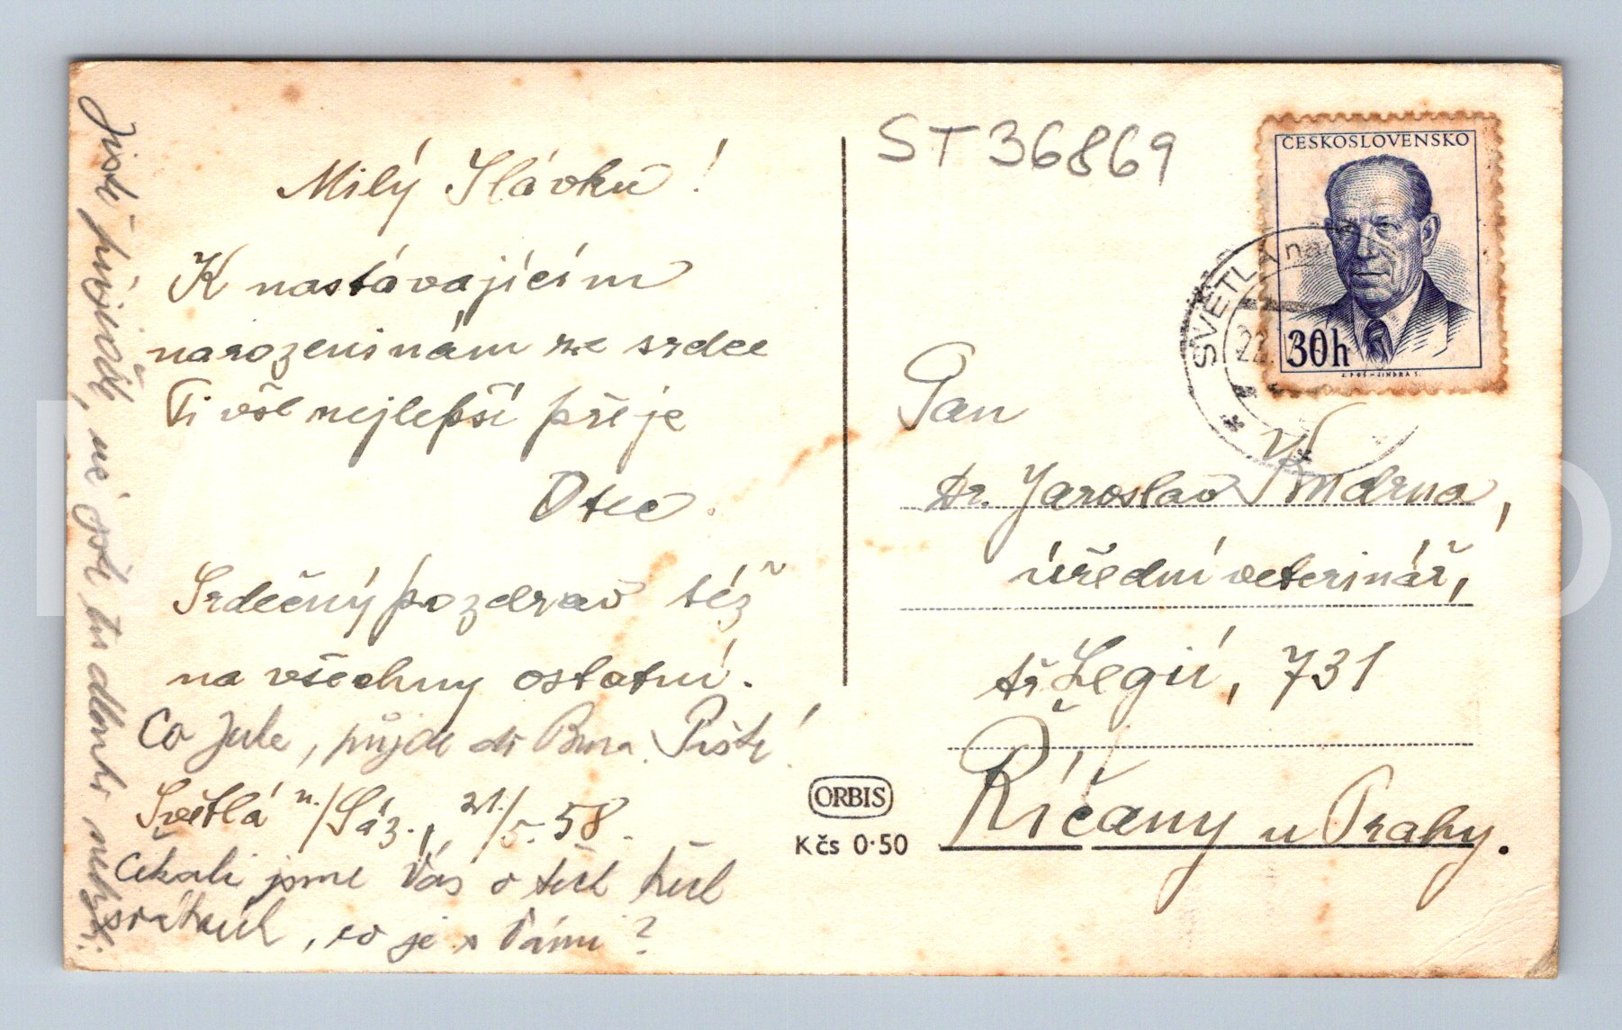 Milý Slávku!
K nastávajícím
narozeninám ze srdce
Ti vše nejlepší přeje
Otec.
Srdečný pozdrav též
na všechny ostatní.
Co Jula, půjde do Brna. Pište!
Světlá n./Sáz., 21./5. 58.
Čekali jsme Vás o těch
svátcích, co je s Vámi?
ST36869
ČESKOSLOVENSKO
30h
SVĚTLÁ nad
22.
Pan
Dr. Jaroslav Smdrna,
úřední veterinář,
tř. Legií, 731
Říčany u Prahy.
ORBIS
Kčs 0·50